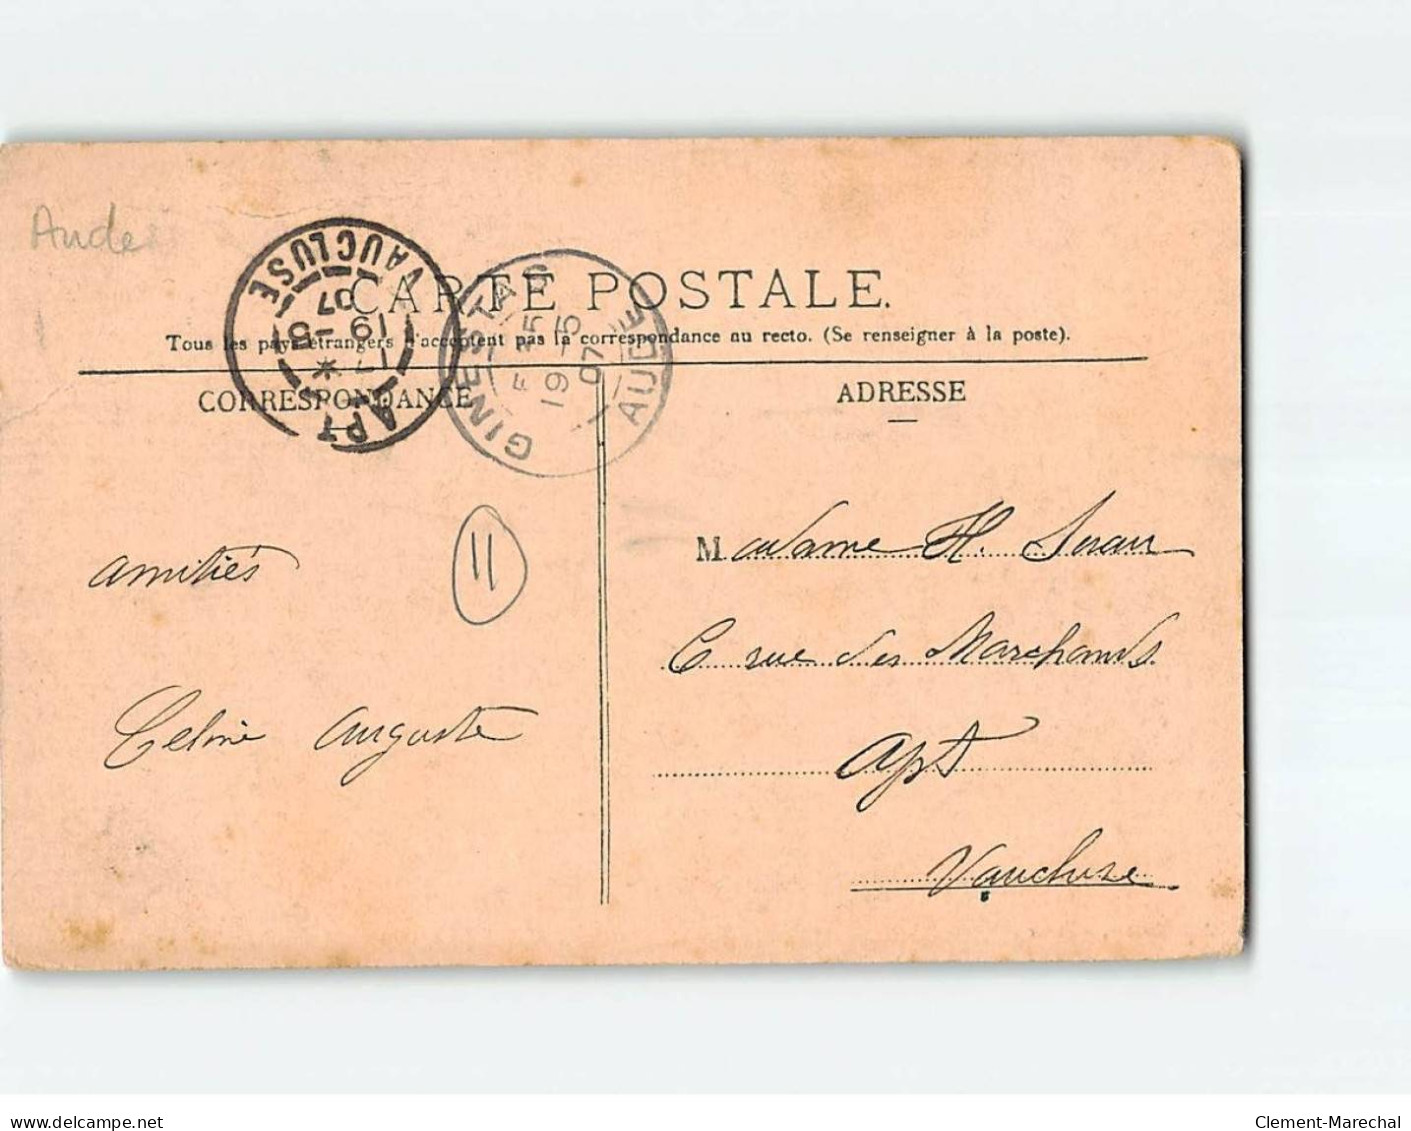 Aude
VAUCLUSE
17 *
19 -5
07
APT
GINESTAS
19 -5
07
AUDE
CARTE POSTALE.
Tous les pays étrangers n'acceptent pas la correspondance au recto. (Se renseigner à la poste).
CORRESPONDANCE
ADRESSE
11
amitiés
Celine Auguste
Madame H.
6 rue des Marchands
Apt
Vaucluse
delcampe.net
Clement-Marechal